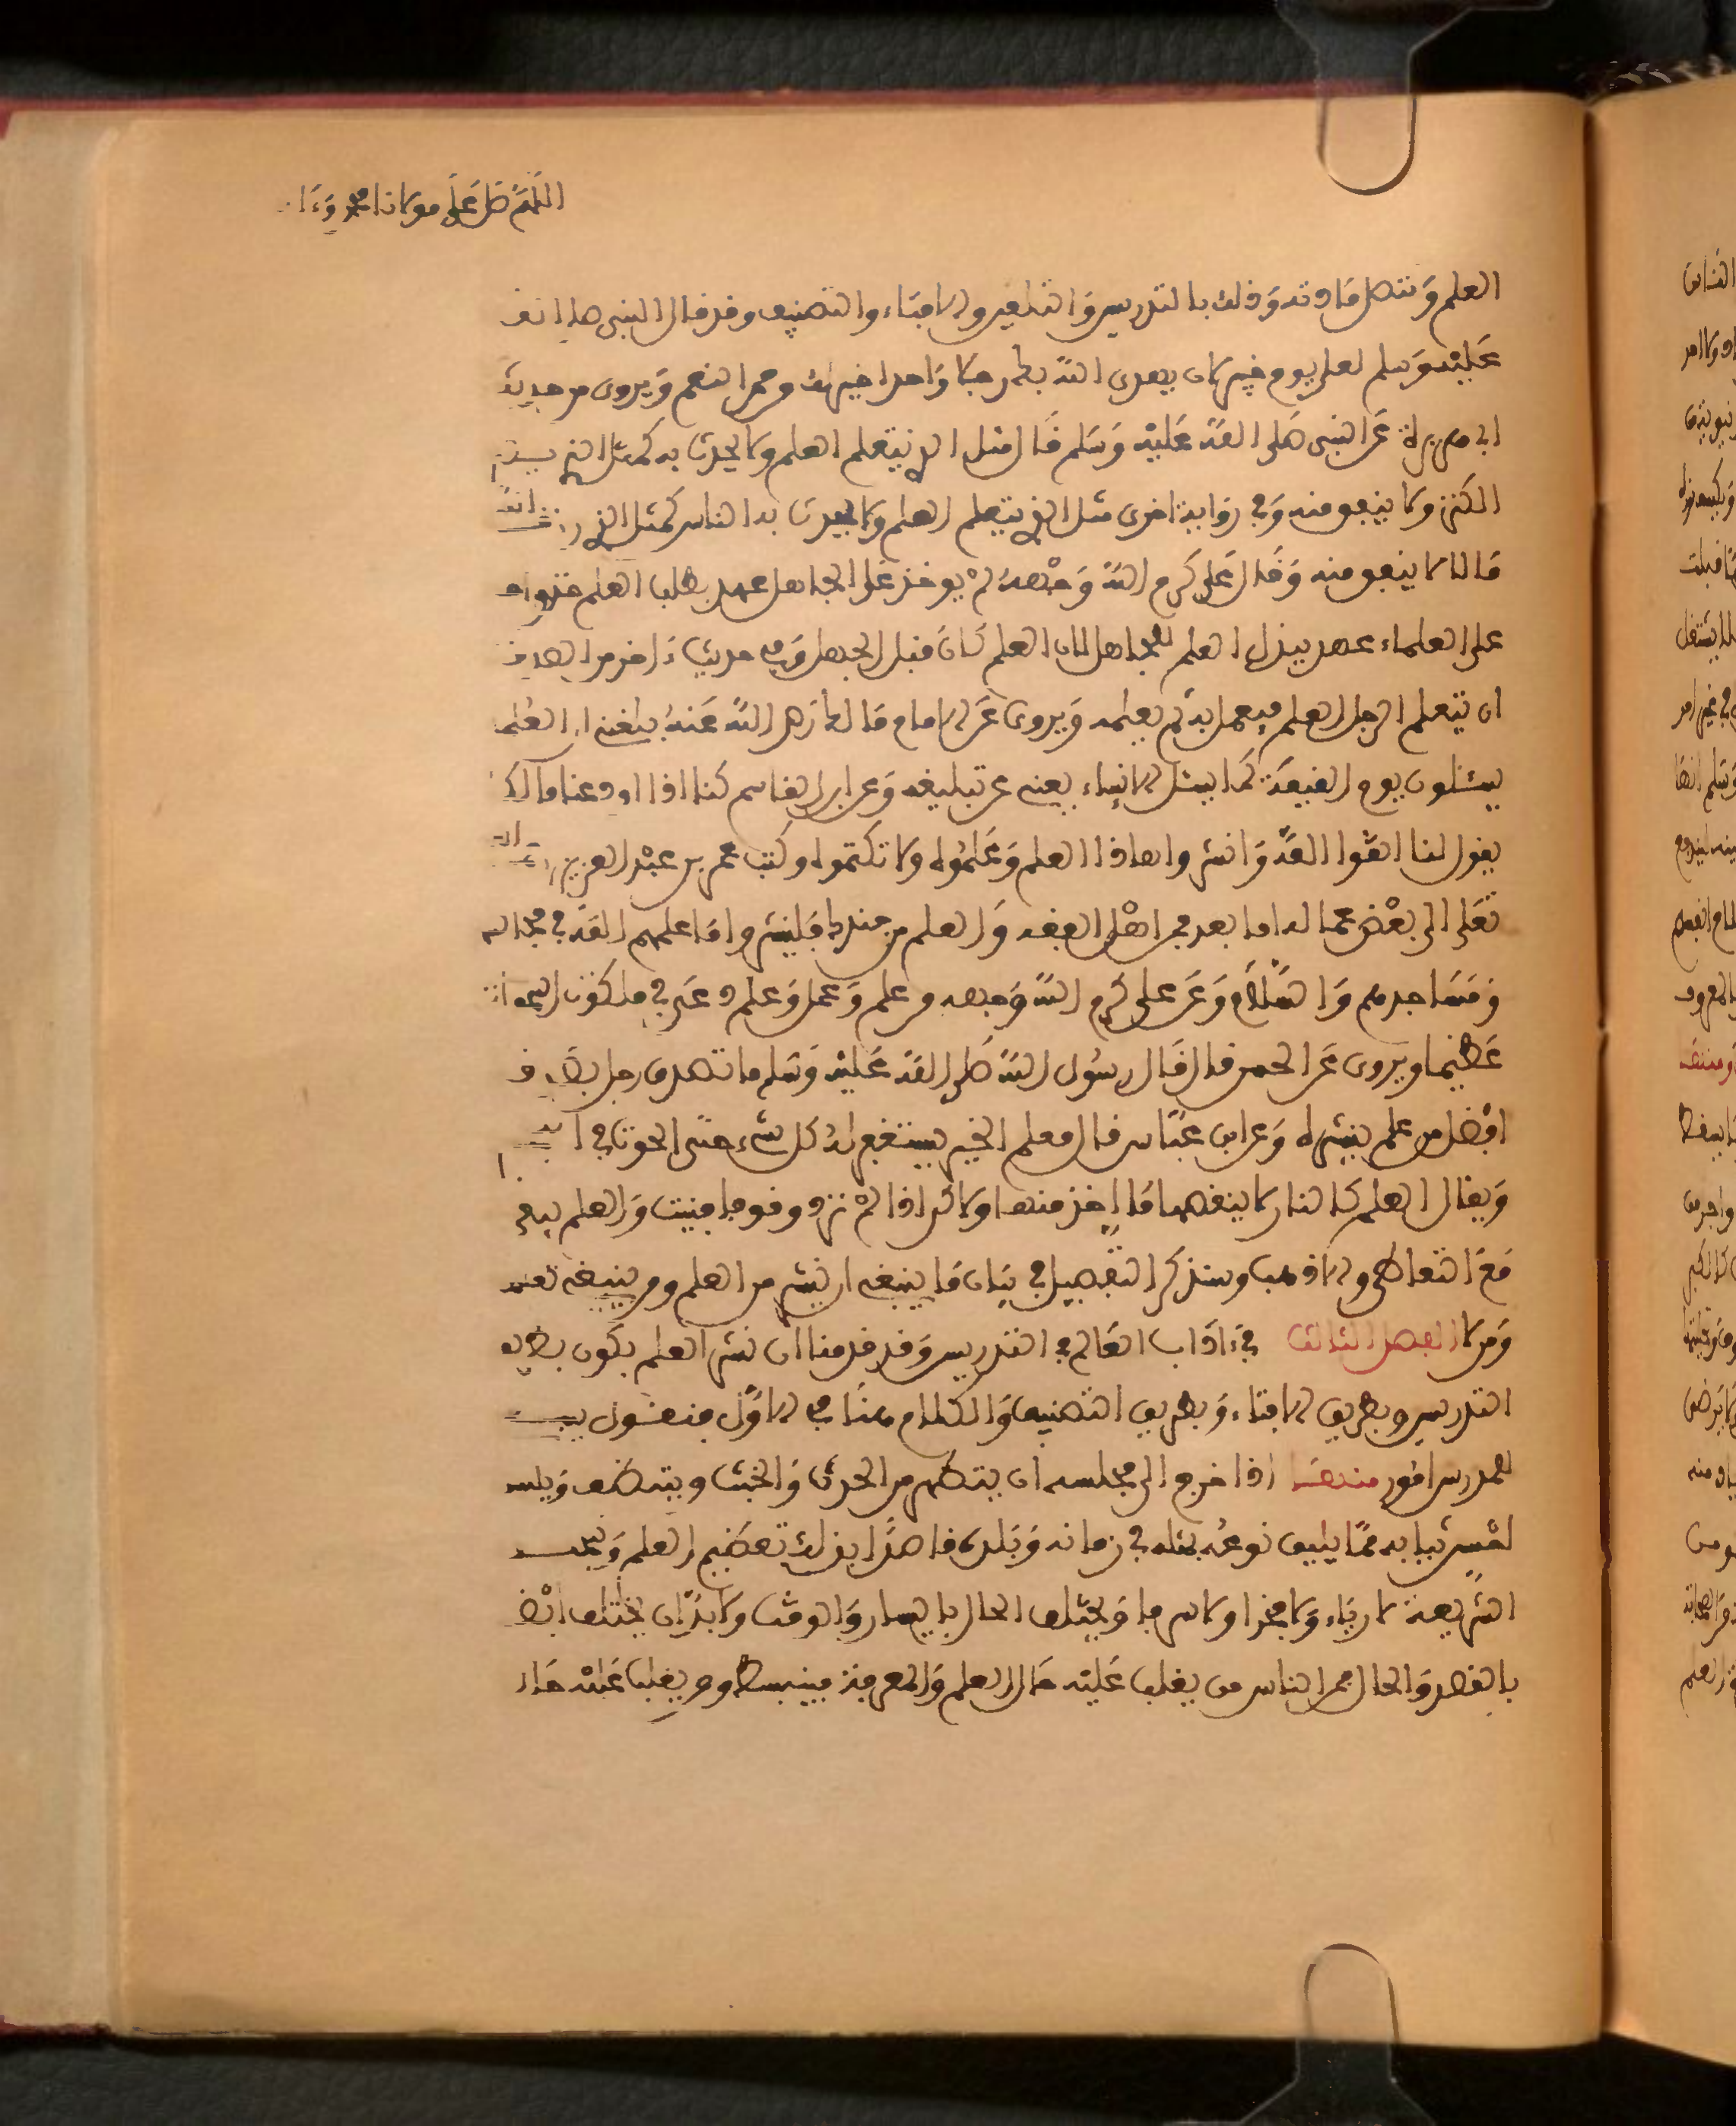 اللهم صل على مولانا محمد وءا
العلم وتتصل مادته وذلك بالتدريس والتلفين والافتاء والتصنيف وقد قال النبي صلى الله
عليه وسلم لعلي يوم خيبر لان يهدي الله بك رجلا واحدا خير لك من حمر النعم ويروى من حديث
ابي هريرة عن النبي صلى الله عليه وسلم قال مثل الذي يتعلم العلم ولا يحدث به كمثل الذي
الكنز ولا ينفق منه وفي رواية اخرى مثل الذي يتعلم العلم ولا يحدث به الناس كمثل الذي رزقه الله
مالا لا ينفق منه وقال علي كرم الله وجهه لم يوخذ على الجاهل عهد بطلب العلم حتى
على العلماء عهد ببذل العلم للجاهل لان العلم كان قبل الجهل وفي حديث ءاخر من الصدقة
ان يتعلم الرجل العلم فيعمل به ثم يعلمه ويروى عن الامام مالك رضي الله عنه بلغني ان العلما
يسئلون يوم القيمة كما يسئل الانبياء يعني عن تبليغه وعن ابن القاسم كنا اذا اودعنا مالكا
يقول لنا اتقوا الله وانشروا هاذا العلم وعلموه ولا تكتموه وكتب عمر بن عبد العزيز
تعلى الى بعض عماله اما بعد فمر اهل الفقه والعلم من جندك فلينشروا ما علمهم الله في مجالسهم
ومساجدهم والسلام وعن علي كرم الله وجهه من علم وعمل وعلم دعي في ملكوت السموات
عظيما ويروى عن الحسن قال قال رسول الله صلى الله عليه وسلم ما تصدق رجل بصدقة
افضل من علم ينشره وعن ابن عباس قال معلم الخير يستغفر له كل شيء حتى الحوت في
ويقال العلم كالنار لا ينقصها ما اخذ منها ولاكن اذا لم تزد وقودها فنيت والعلم يبقى
مع التعاطي والا ذهب وسنذكر التفصيل في بيان ما ينبغي ان ينشر من العلم ومن ينبغي تعليمه
ومن لا الفصل الثالث في ءاداب العالم في التدريس وقد قدمنا ان نشر العلم يكون بطريق
التدريس وبطريق الافتاء وبطريق التصنيف والكلام هنا في الاول فنقول ينبغي
للمدرس امور منها اذا خرج الى مجلسه ان يتطهر من الحدث والخبث ويتنظف ويلبس
احسن ثيابه مما يليق نوعه بمثله في زمانه وبلده قاصدا بذلك تعظيم العلم
الشريعة لا رياء ولا فخرا ولا سرفا ويختلف الحال باليسار والوقت ولا بد ان يختلف ايضا
بالقصد والحال فمن الناس من يغلب عليه حال العلم والمعرفة فينبسط ومن يغلب عليه حال